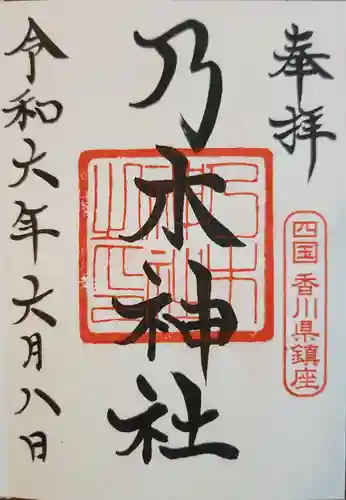 奉拝
四国 香川県鎮座
乃木神社
令和六年六月八日